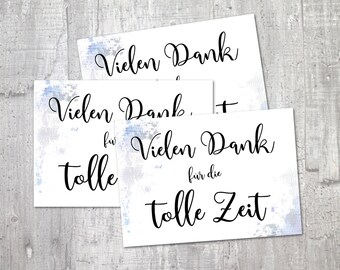 Vielen Dank
für
Zeit
Vielen Dank
für
tolle
Vielen Dank
für die
tolle Zeit